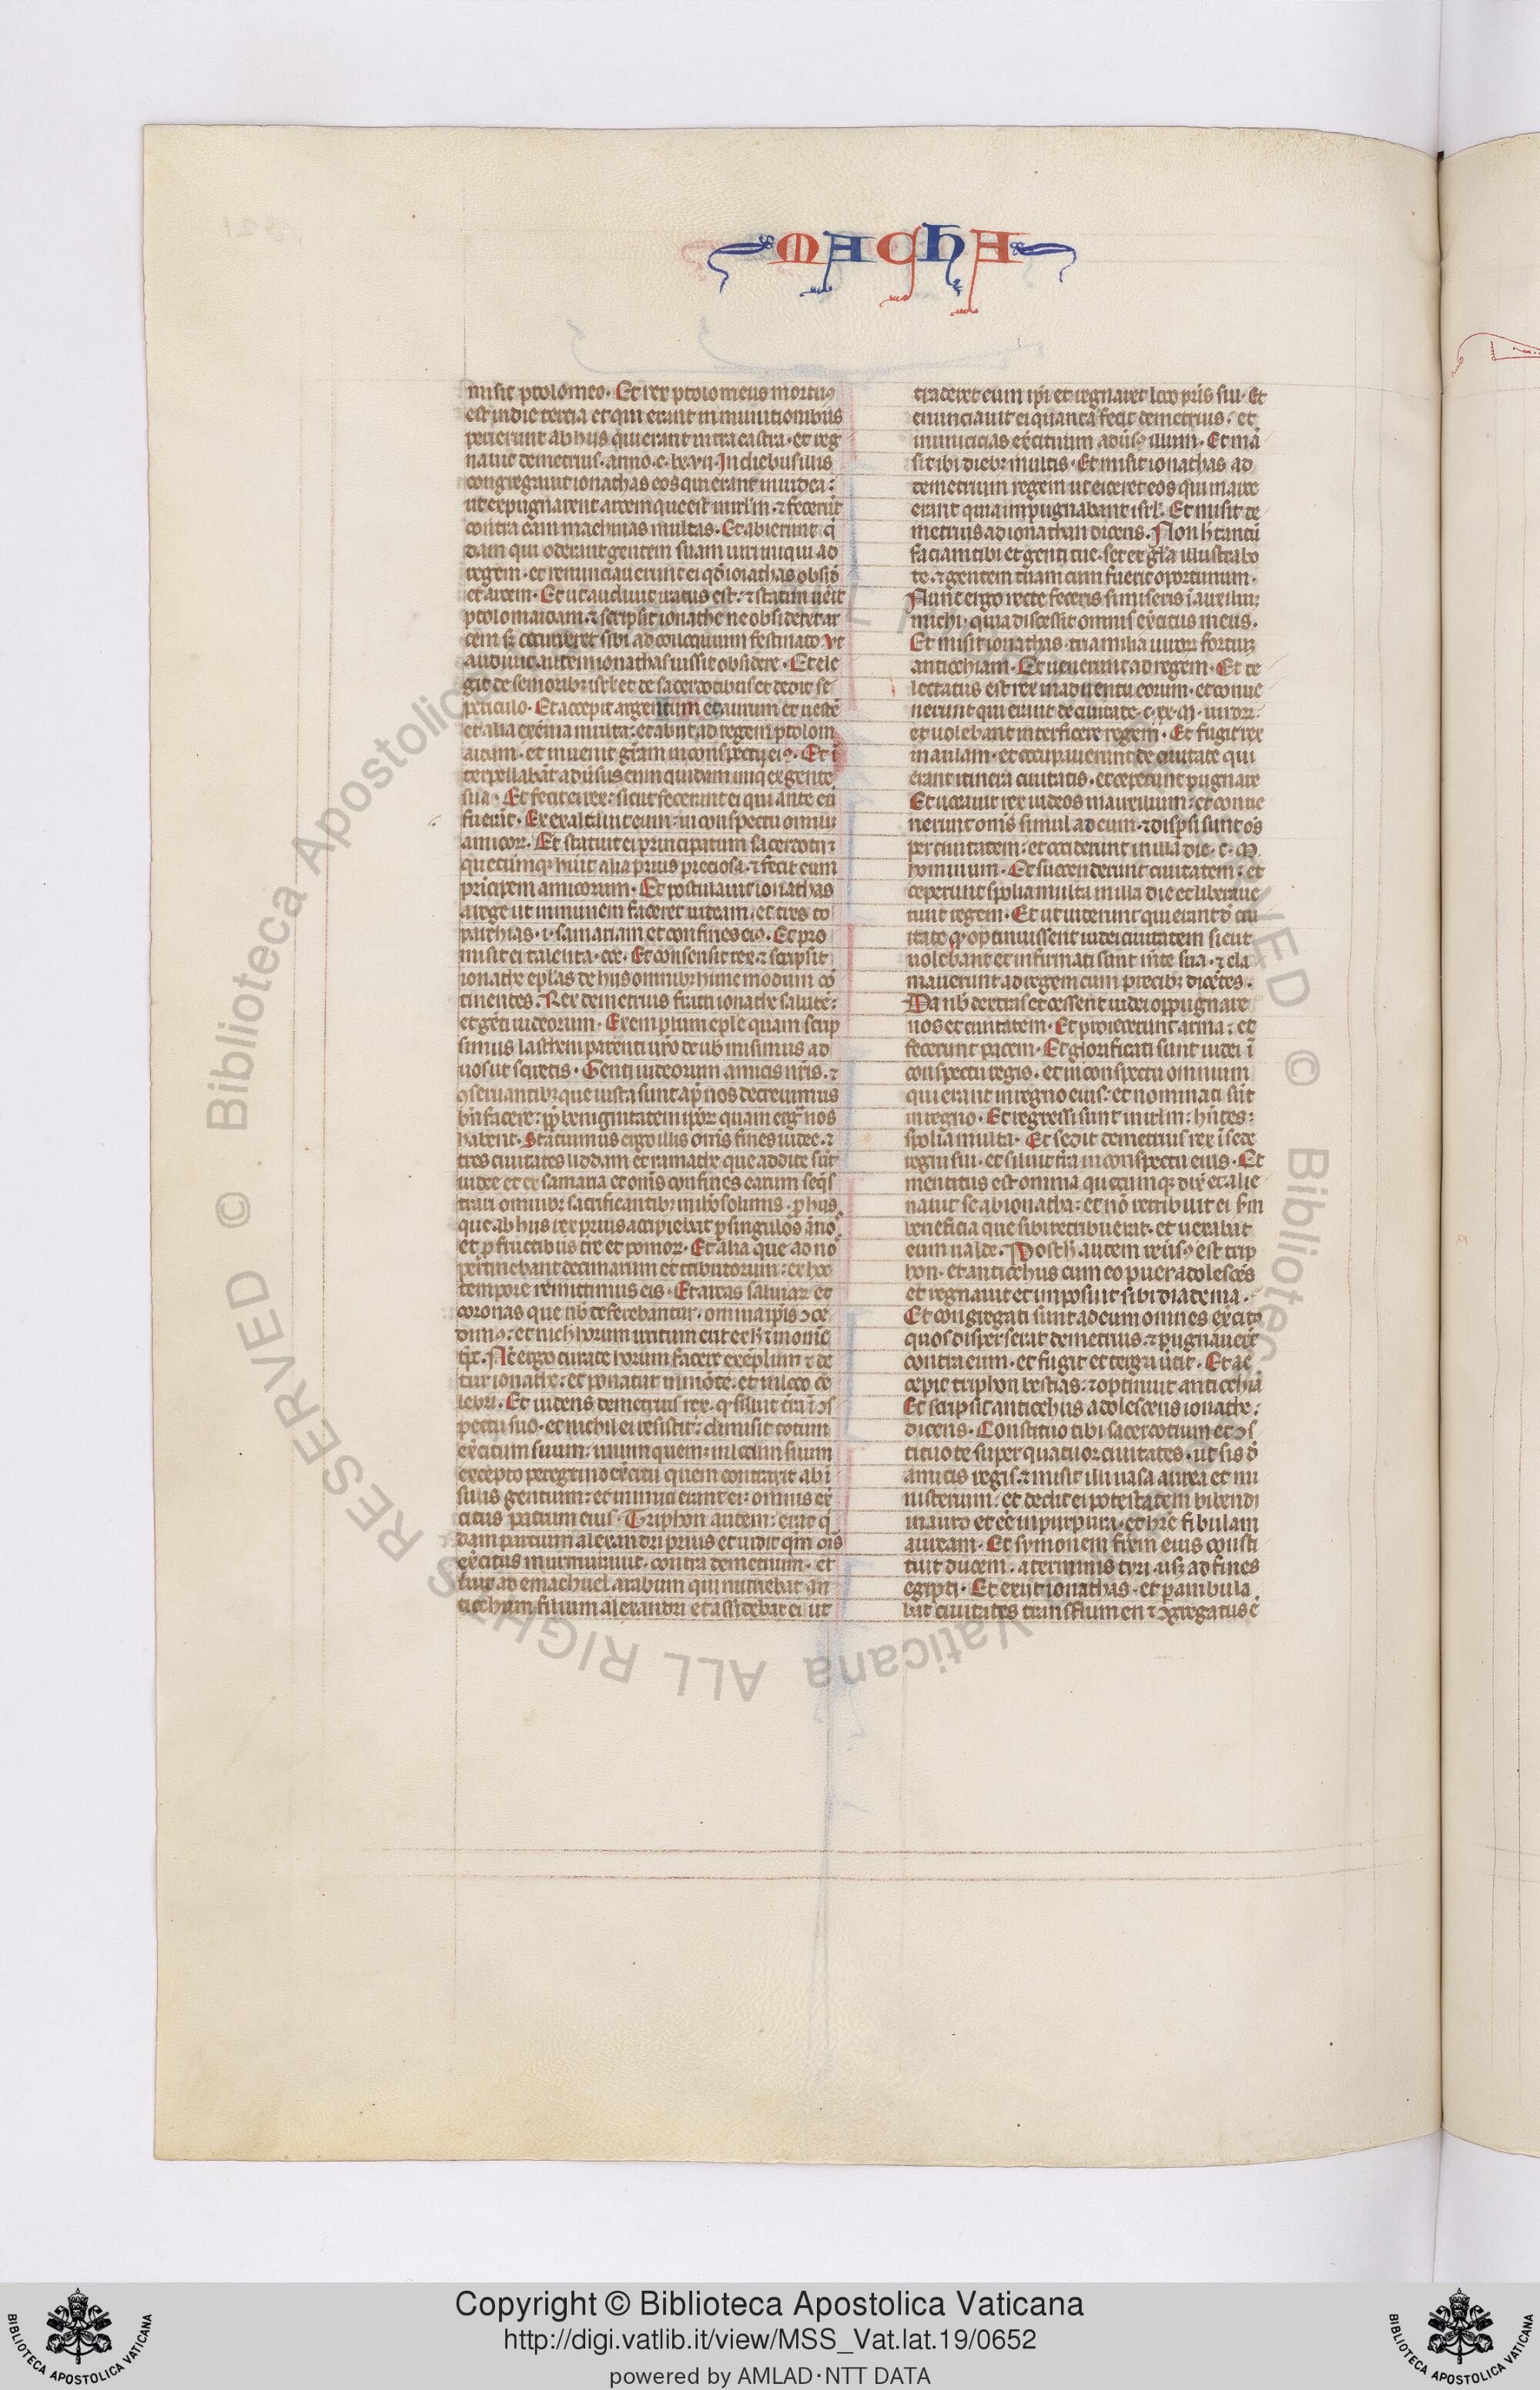 MACHA
misit ptolomeo. Et rex ptolomeus mortuꝰ
est in die tercia et qui erant in munitionibus
perierunt ab hijs qui erant intra castra. et reg
nauit demetrius. anno. c. lx. vii. In diebus illis
congregauit ionathas eos qui erant in iudea:
ut expugnarent arcem que est in irlm̄. ⁊ fecerūt
contra eam machinas multas. Et abierunt q̇
dam qui oderant gentem suam uiri iniqui ad
regem. et renunciauerunt ei qd̄ ionathas obsid̄
et arcem. Et ut audiuit iratus est: ⁊ statim uēit
ptolomaidam. ⁊ scripsit ionathe ne obsideret ar
cem sꝫ occurreret sibi ad colloquium festinato. Vt
audiuit autem ionathas iussit obsidere. Et ele
git de senioribꝫ isrl̄ et de sacerdotibus et dedit se
periculo. Et accepit argentum et aurum et uestē
et alia exenia multa: et abiit ad regem ptolom
aidam. et inuenit grām in conspectu eiꝰ. Et ī
terpellabāt aduersus eum quidam iniq̇ ex gente
sua. Et fecit ei rex: sicut fecerunt ei qui ante eū
fuerāt. Et exaltauit eum: in conspectu omniū
amicoꝝ. Et statuit ei principatum sacerdotij ⁊
quecumqꝫ huit alia prius preciosa. ⁊ fecit eum
principem amicorum. Et postulauit ionathas
a rege ut inmunem faceret iudeam. et tres to
parthias. i. samariam et confines eiꝰ. Et pro
misit ei talenta. ccc. Et consensit rex. ⁊ scripsit
ionathe epl̄as de hijs omnibꝫ hunc modum cō
tinentes. Rex demetrius fratri ionathe salutē:
et gēti iudeorum. Exemplum epl̄e quam scrip
simus lastheni parenti nr̄o de uob̄ misimus ad
uos ut sciretis. Genti iudeorum amicis nr̄is. ⁊
ꝯseruantibꝫ que iusta sunt ap̄ nos decreuimus
bn̄facere: ꝓpt̄ benignitatem ipoꝝ quam erga nos
habent. Statuimus ergo illis om̄s fines iudee. ⁊
tres ciuitates liddam et ramathe que addite sūt
iudee et ex samaria et om̄s confines earum seq̄s
trari omnibꝫ sacrificantibꝫ in iherosolimis. ꝓ hijs
que ab hijs rex prius accipiebat p singulos ānos
et ꝓ fructibus tr̄e et pomoꝝ. Et alia que ad nos
pertinebant decimarum et tributorum: ex hoc
tempore remittimus eis. Et areas salinaꝝ et
coronas que nob̄ deferebantur. omnia ipis ꝯce
dimꝰ: et nichil horum irritum erit ex h̄ ⁊ in om̄e
tp̄c. Nc̄ ergo curate horum facere exēplum ⁊ de
tur ionathe: et ponatur in mōte. et in loco ce
lebri. Et uidens demetrius rex. qꝫ siluit tr̄a ī ꝯs
pectu suo. et nichil ei resistit: dimisit totum
exc̄itum suum: unum quemqꝫ in locum suum
excepto peregrino exc̄itu quem contraxit ab ī
sulis gentium: et inimici erant ei: omnis exc̄
citus patrum eius. Triphon autem: erat q̇
dam partium alexandri prius et uidit qm̄ oīs
exc̄itus murmurauit. contra demetrium. et
iuit ad emachuel arabum qui nutriebat an
tiochum filium alexandri et assidebat ei ut
traderet eum ip̄i et regnaret loco pr̄is sui. Et
enunciauit ei quanta fecit demetrius: et
inimicicias exc̄ituum aduersꝰ illum. Et mā
sit ibi diebꝫ multis. Et misit ionathas ad
demetrium regem ut eiceret eos qui in arce
erant quia impugnabant isrl̄. Et misit de
metrius ad ionathan dicens. Non h̄ tantū
faciam tibi et genti tue. set et gl̄ia illustrabo
te. ⁊ gentem tuam cum fuerit oportunum.
Nunc ergo recte feceris si miseris ī auxiliuꝫ
michi. quia discessit omnis exc̄itus meus.
Et misit ionathas. tria milia uiroꝝ fortiuꝫ
antiochiam. Et uenerunt ad regem. Et de
lectatus est rex in aduentu eorum. et conue
nerunt qui erant de ciuitate. c. xx. M. uiroꝝ.
et uolebant interficere regem. Et fugit rex
in aulam. et occupauerunt de ciuitate qui
erant itinera ciuitatis. et ceperunt pugnare
Et uocauit rex iudeos in auxilium: et conue
nerunt om̄s simul ad eum. ⁊ disp̄si sunt oēs
per ciuitatem: et occiderunt in illa die. c. M.
hominum. Et succenderunt ciuitatem: et
ceperunt spolia multa in illa die et liberaue
runt regem. Et ut uiderunt qui erant d̄ ciu
itate qꝫ optinuissent iudei ciuitatem sicut
uolebant et infirmati sunt mn̄te sua. ⁊ cla
mauerunt ad regem cum precibꝫ dicētes.
Da nob̄ dextras et cessent iudei oppugnare
nos et ciuitatem. Et proiecerunt arma: et
fecerunt pacem. Et glorificati sunt iudei ī
conspectu regis. et in conspectu omnium
qui erant in regno eius: et nominati sūt
in regno. Et regressi sunt in irlm̄: hn̄tes:
spolia multa. Et sedit demetrius rex ī sede
regni sui. et siluit tr̄a in conspectu eius. Et
mentitus est omnia quecumqꝫ dix̄ et alie
nauit se ab ionatha: et nō retribuit ei scd̄m
beneficia que sibi retribuerat. et uexabat
eum ualde. Post h̄ autem reuersꝰ est trip
hon. et antiochus cum eo puer adolescēs
et regnauit et imposuit sibi diadema.
Et congregati sunt ad eum omnes exc̄itꝰ
quos disperserat demetrius. ⁊ pugnauerūt
contra eum. et fugit et terga ūtit. Et ac
cepit triphon bestias: ⁊ optinuit antiochiā
Et scripsit antiochus adolescens ionathe:
dicens. Constituo tibi sacerdotium et ꝯs
tituo te super quatuor ciuitates. ut sis d̄
amicis regis. ⁊ misit illi uasa aurea et mi
nisterium. et dedit ei potestatem bibendi
in auro et eē in purpura. et hr̄e fibulam
auream. Et symonem fr̄em eius consti
tuit ducem. a terminis tyri. usqꝫ ad fines
egipti. Et exijt ionathas. et pambula
bat ciuitates trans flumen ⁊ ꝯgregatus ē
Copyright © Biblioteca Apostolica Vaticana
http://digi.vatlib.it/view/MSS_Vat.lat.19/0652
powered by AMLAD·NTT DATA